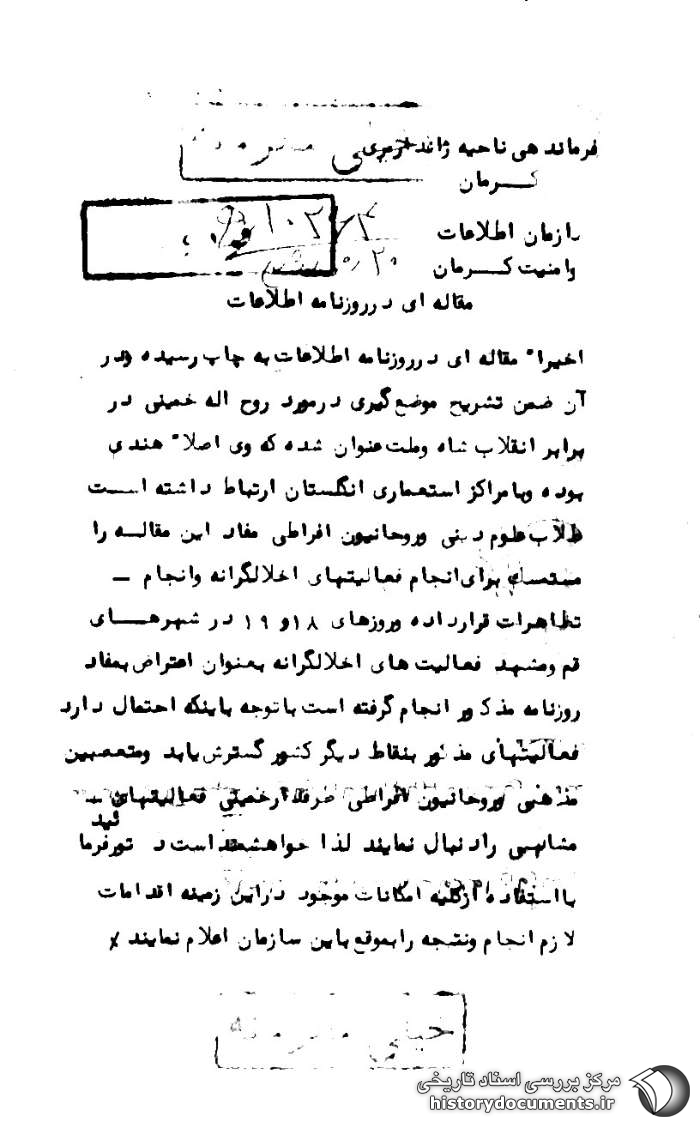 خیلی محرمانه
فرماندهی ناحیه ژاندارمری
کرمان
سازمان اطلاعات
وامنیت کرمان
مقاله ای در روزنامه اطلاعات
اخیرا" مقاله ای در روزنامه اطلاعات به چاپ رسیده ودر
آن ضمن تشریح موضع گیری در مورد روح اله خمینی در
برابر انقلاب شاه وملت عنوان شده که وی اصلا" هندی
بوده وبا مراکز استعماری انگلستان ارتباط داشته است
طلاب علوم دینی وروحانیون افراطی مفاد این مقاله را
مستمسک برای انجام فعالیتهای اخلالگرانه وانجام –
تظاهرات قرار داده وروزهای ۱۸ و ۱۹ در شهرهای
قم ومشهد فعالیت های اخلالگرانه بعنوان اعتراض بمفاد
روزنامه مذکور انجام گرفته است با توجه باینکه احتمال دارد
فعالیتهای مذکور بنقاط دیگر کشور گسترش یابد ومتعصبین
مذهبی وروحانیون افراطی طرفدار خمینی فعالیتهای –
مشابهی را دنبال نمایند لذا خواهشمند است دستور فرمائید
با استفاده از کلیه امکانات موجود در این زمینه اقدامات
لازم انجام ونتیجه را بموقع باین سازمان اعلام نمایند
خیلی محرمانه
مرکز بررسی اسناد تاریخی
historydocuments.ir